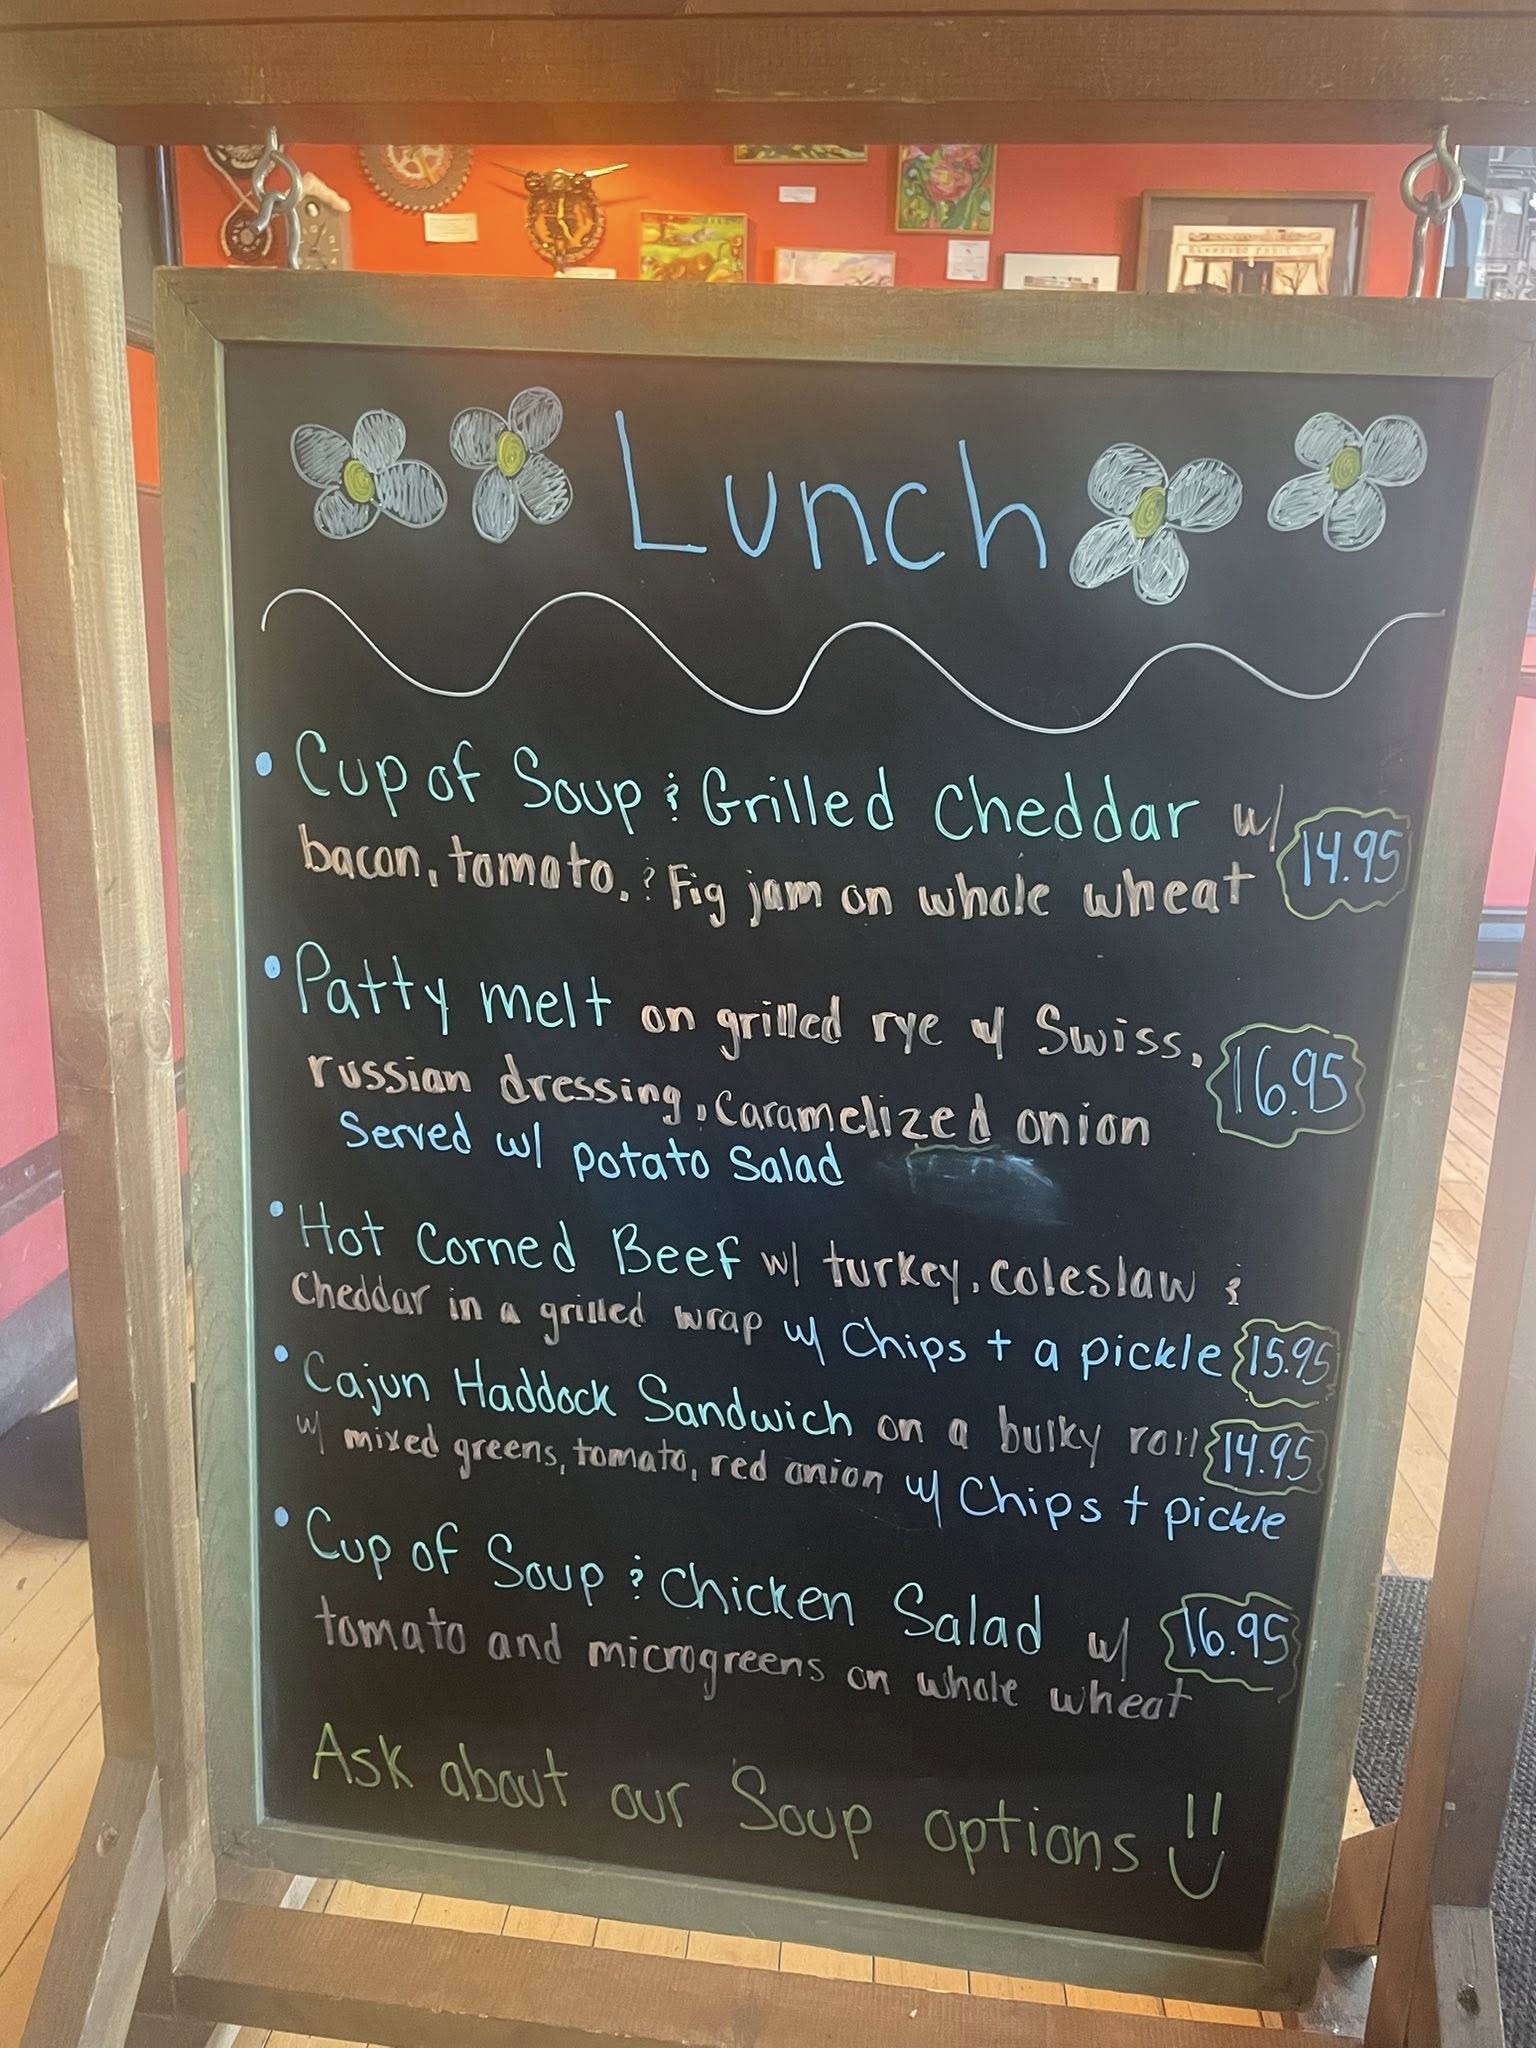 Lunch
• Cup of Soup & Grilled Cheddar w/
bacon, tomato, & Fig jam on whole wheat 14.95
• Patty melt on grilled rye w/ Swiss,
russian dressing, caramelized onion 16.95
Served w/ potato Salad
• Hot Corned Beef w/ turkey, coleslaw &
Cheddar in a grilled wrap w/ Chips + a pickle 15.95
• Cajun Haddock Sandwich on a bulky roll 14.95
w/ mixed greens, tomato, red onion w/ Chips + pickle
• Cup of Soup & Chicken Salad w/ 16.95
tomato and microgreens on whole wheat
Ask about our Soup options